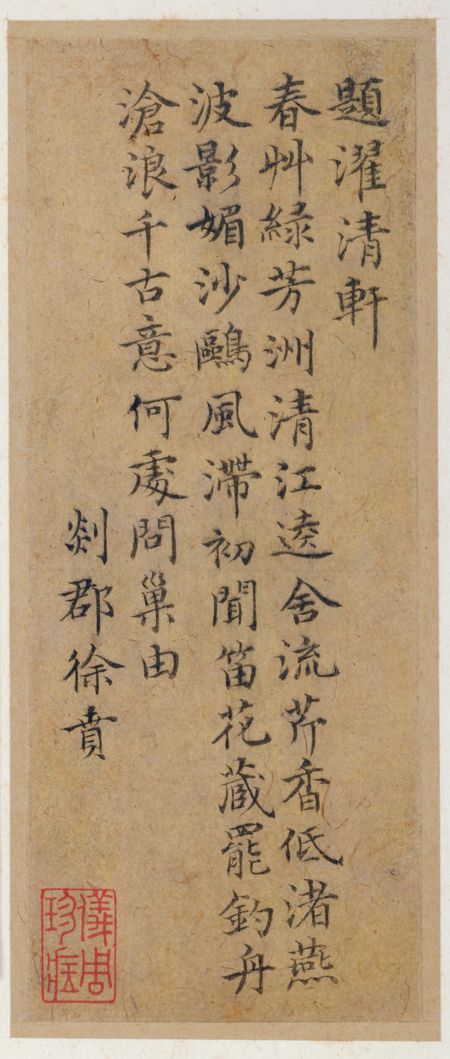 題濯清軒
春艸緑芳洲清江遶舍流芹香低渚燕
波影媚沙鷗風滯初聞笛花蔵罷釣舟
滄浪千古意何處問巢由
剡郡徐賁
儀周珍藏